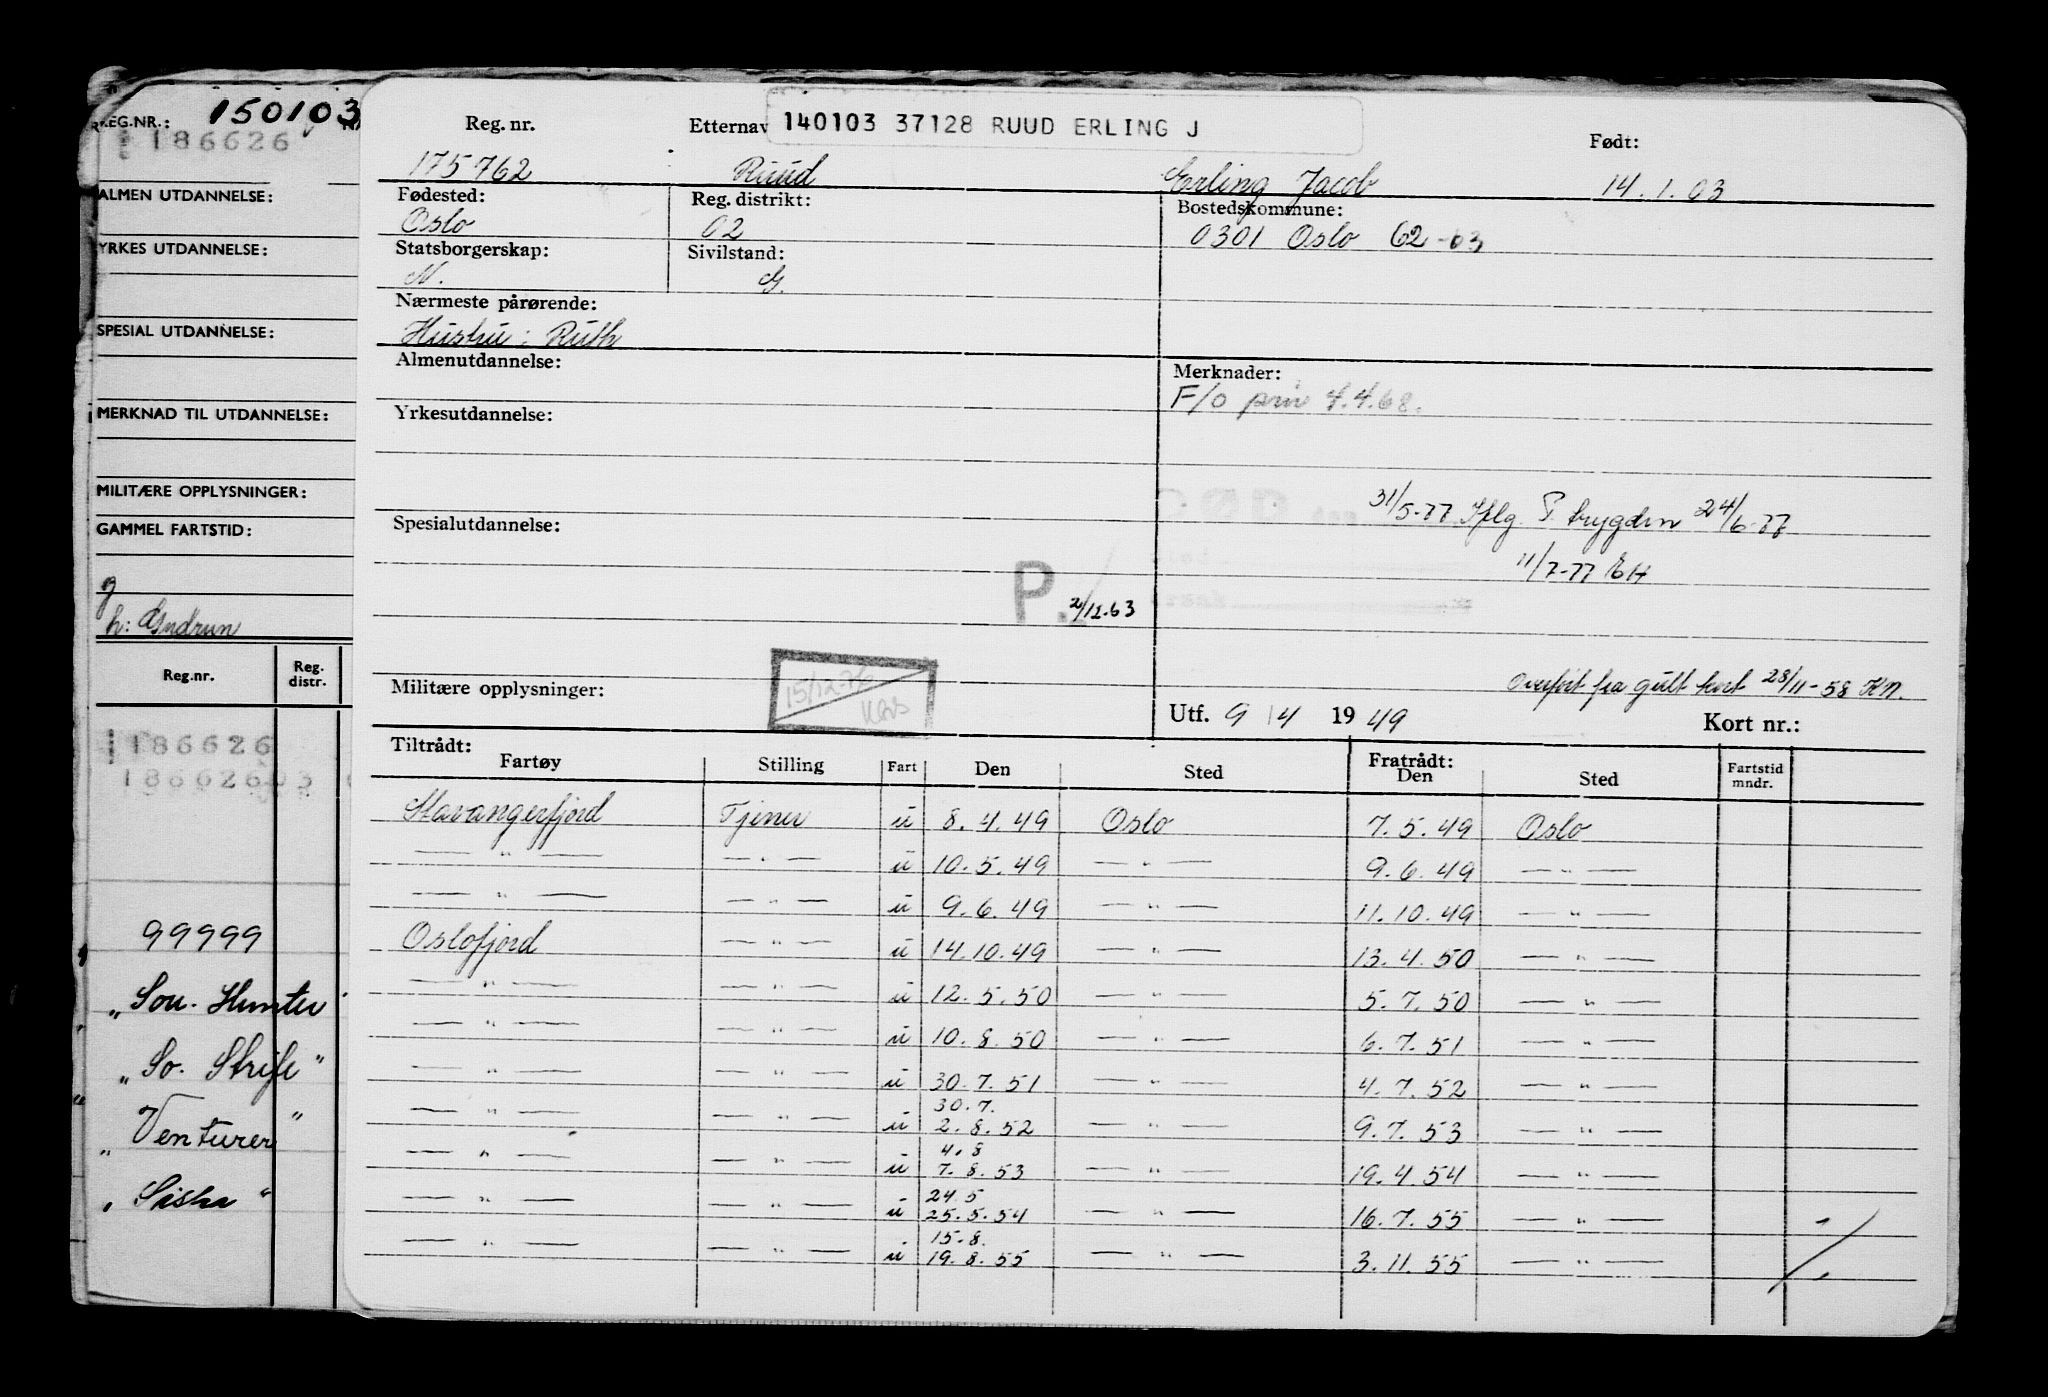 REG.NR.: 150103
186626
ALMEN UTDANNELSE:
YRKES UTDANNELSE:
SPESIAL UTDANNELSE:
MERKNAD TIL UTDANNELSE:
MILITÆRE OPPLYSNINGER:
GAMMEL FARTSTID:
g
h: Gudrun
Reg.nr. Reg. distr.
186626
18662603
99999
„Sou. Hunter
„So. Strife"
„Venturer"
„Siska"
140103 37128 RUUD ERLING J
Reg. nr. Etternav Født:
175762 Ruud Erling Jacob 14.1.03
Fødested: Reg. distrikt: Bostedskommune:
Oslo 02 0301 Oslo 62-63
Statsborgerskap: Sivilstand:
N. G.
Nærmeste pårørende:
Hustru: Ruth
Almenutdannelse: Merknader:
F/O pm 4.4.68.
Yrkesutdannelse:
31/5-77 Iflg. P. trygden 24/6-77
Spesialutdannelse:
11/7-77 EH
P. 2/12.63
Overført fra gult kort 28/11-58 KN.
Militære opplysninger: 15/12-76
Utf. 9/4 1949 Kort nr.:
Tiltrådt: Fratrådt:
Fartøy Stilling Fart Den Sted Den Sted Fartstid mndr.
Stavangerfjord Tjener u 8.4.49 Oslo 7.5.49 Oslo
— " — — " — u 10.5.49 — " — 9.6.49 — " —
— " — — " — u 9.6.49 — " — 11.10.49 — " —
Oslofjord — " — u 14.10.49 — " — 13.4.50 — " —
— " — — " — u 12.5.50 — " — 5.7.50 — " —
— " — — " — u 10.8.50 — " — 6.7.51 — " —
— " — — " — u 30.7.51 — " — 4.7.52 — " —
30.7.
— " — — " — u 2.8.52 — " — 9.7.53 — " —
4.8
— " — — " — u 7.8.53 — " — 19.4.54 — " —
24.5
— " — — " — u 25.5.54 — " — 16.7.55 — " —
15.8.
— " — — " — u 19.8.55 — " — 3.11.55 — " —